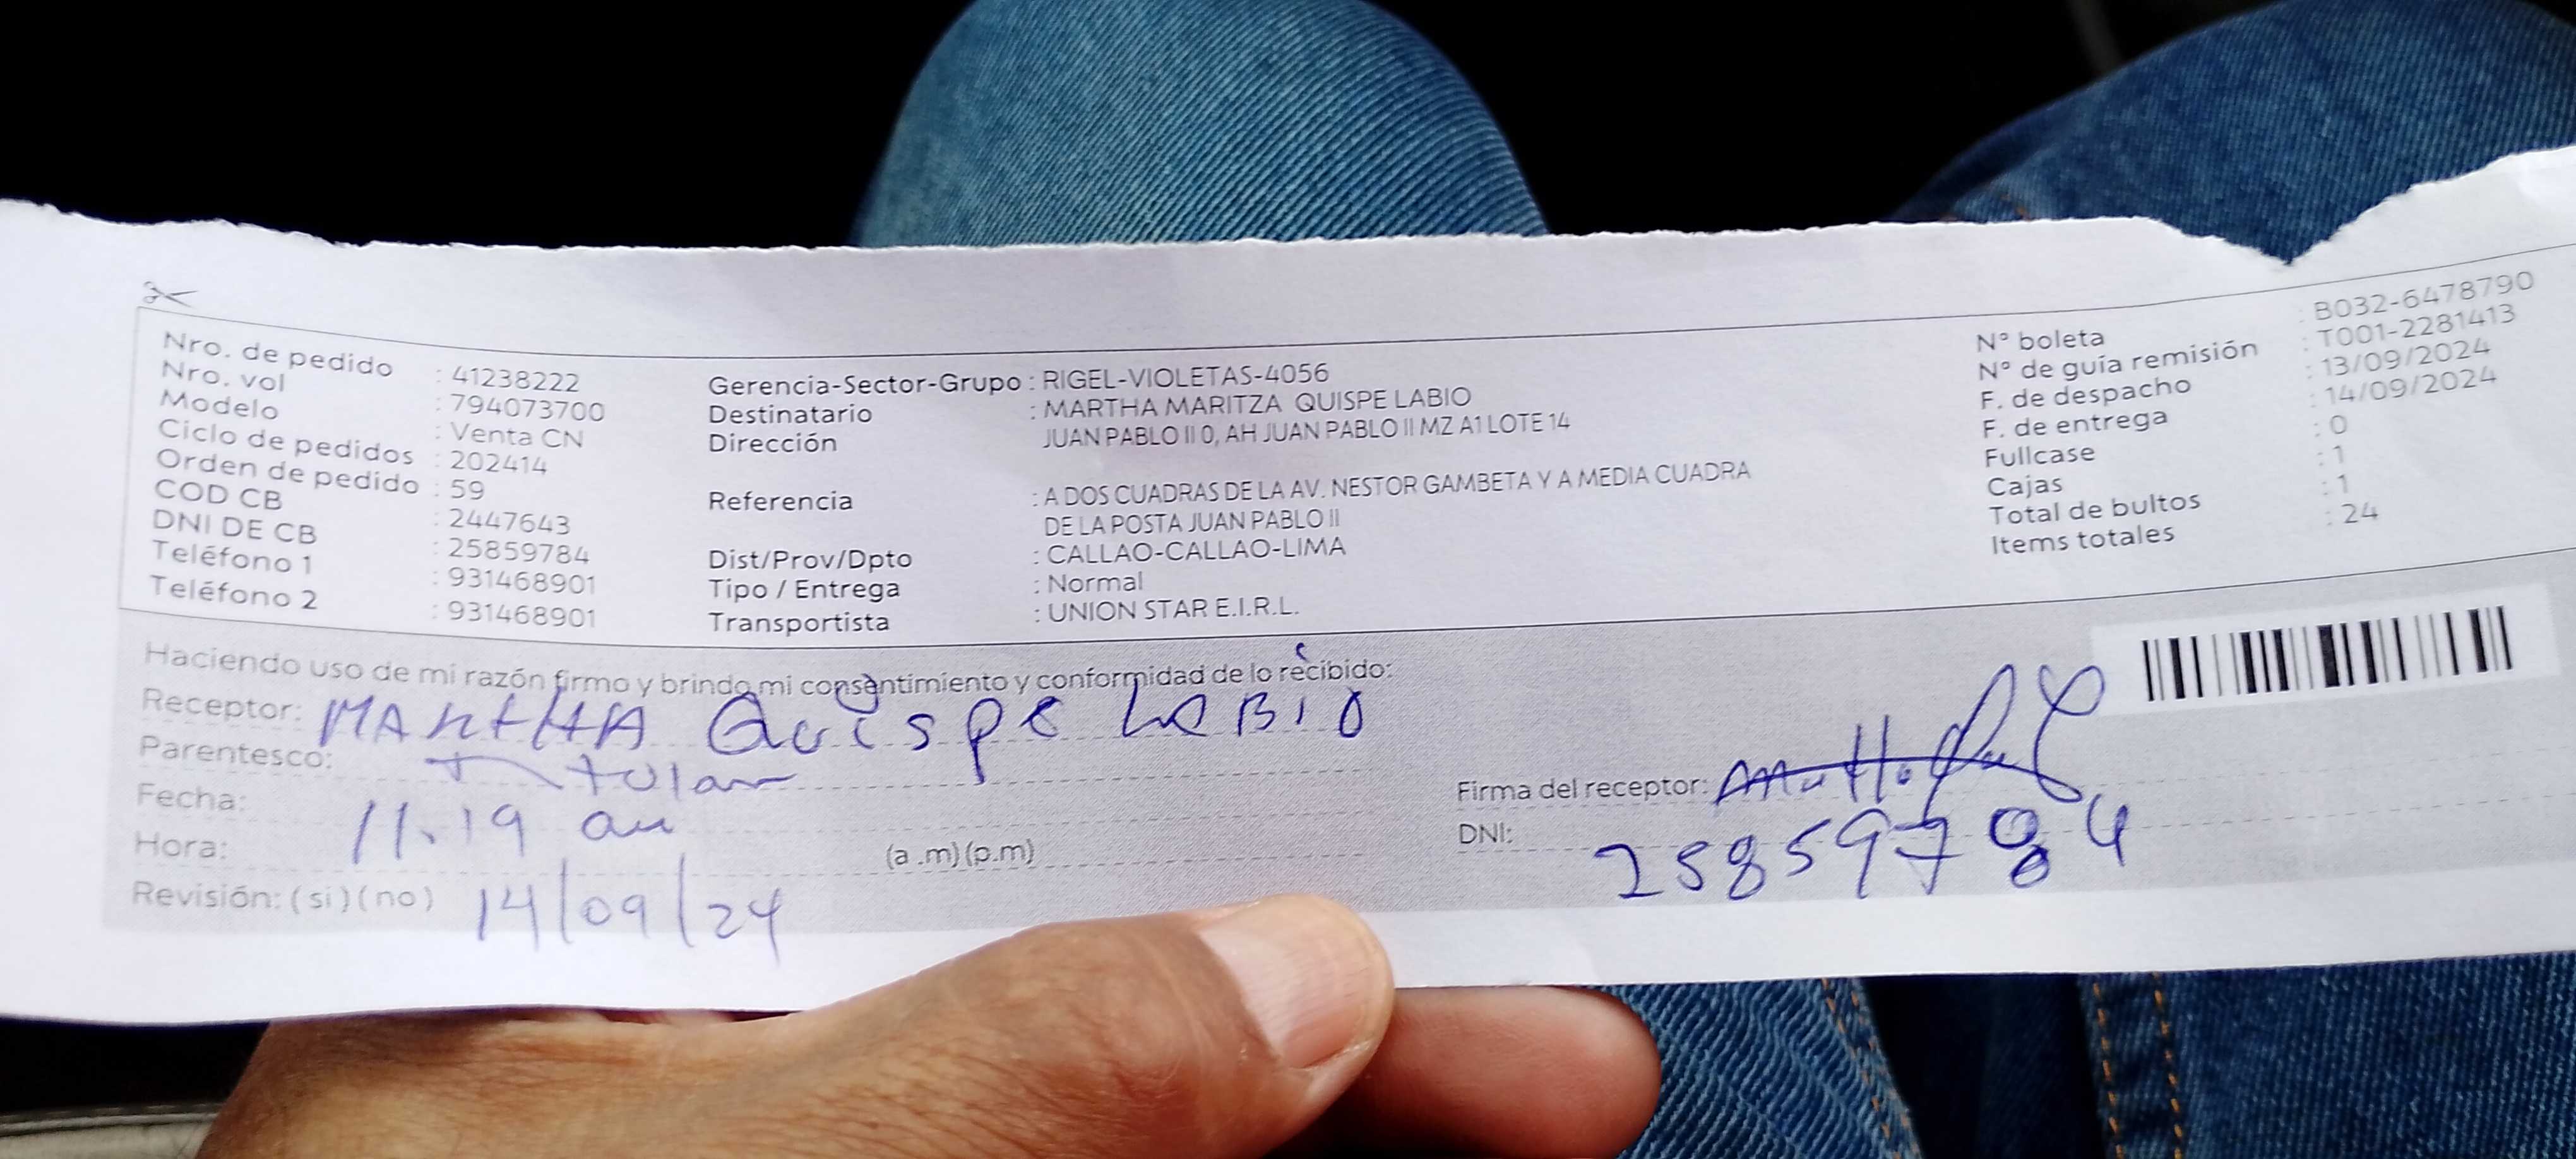 Nro. de pedido : 41238222
Nro. vol : 794073700
Modelo : Venta CN
Ciclo de pedidos : 202414
Orden de pedido : 59
COD CB : 2447643
DNI DE CB : 25859784
Teléfono 1 : 931468901
Teléfono 2 : 931468901
Gerencia-Sector-Grupo : RIGEL-VIOLETAS-4056
Destinatario : MARTHA MARITZA QUISPE LABIO
Dirección JUAN PABLO II 0, AH JUAN PABLO II MZ A1 LOTE 14
Referencia : A DOS CUADRAS DE LA AV. NESTOR GAMBETA Y A MEDIA CUADRA
DE LA POSTA JUAN PABLO II
Dist/Prov/Dpto : CALLAO-CALLAO-LIMA
Tipo / Entrega : Normal
Transportista : UNION STAR E.I.R.L.
N° boleta : B032-6478790
N° de guía remisión : T001-2281413
F. de despacho : 13/09/2024
F. de entrega : 14/09/2024
Fullcase : 0
Cajas : 1
Total de bultos : 1
Items totales : 24
Haciendo uso de mi razón firmo y brindo mi consentimiento y conformidad de lo recibido:
Receptor: MARtHA Quispe LaBIO
Parentesco: Titular
Fecha: 11.19 am
Hora: (a .m) (p.m)
Revisión: ( si ) ( no ) 14/09/24
Firma del receptor:
DNI: 25859784